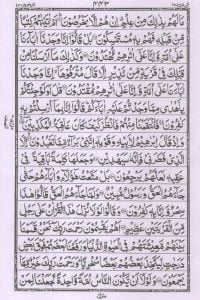 ۴۴۳
مَا لَهُمْ بِذٰلِكَ مِنْ عِلْمٍ اِنْ هُمْ اِلَّا يَخْرُصُوْنَ اَمْ اٰتَيْنٰهُمْ كِتٰبًا
مِّنْ قَبْلِهٖ فَهُمْ بِهٖ مُسْتَمْسِكُوْنَ بَلْ قَالُوْٓا اِنَّا وَجَدْنَآ
اٰبَآءَنَا عَلٰٓى اُمَّةٍ وَّاِنَّا عَلٰٓى اٰثٰرِهِمْ مُّهْتَدُوْنَ وَكَذٰلِكَ مَآ اَرْسَلْنَا مِنْ
قَبْلِكَ فِيْ قَرْيَةٍ مِّنْ نَّذِيْرٍ اِلَّا قَالَ مُتْرَفُوْهَآ اِنَّا وَجَدْنَآ
اٰبَآءَنَا عَلٰٓى اُمَّةٍ وَّاِنَّا عَلٰٓى اٰثٰرِهِمْ مُّقْتَدُوْنَ قٰلَ اَوَلَوْ جِئْتُكُمْ
بِاَهْدٰى مِمَّا وَجَدْتُّمْ عَلَيْهِ اٰبَآءَكُمْ قَالُوْٓا اِنَّا بِمَآ اُرْسِلْتُمْ بِهٖ
كٰفِرُوْنَ فَانْتَقَمْنَا مِنْهُمْ فَانْظُرْ كَيْفَ كَانَ عَاقِبَةُ الْمُكَذِّبِيْنَ
وَاِذْ قَالَ اِبْرٰهِيْمُ لِاَبِيْهِ وَقَوْمِهٖٓ اِنَّنِيْ بَرَآءٌ مِّمَّا تَعْبُدُوْنَ اِلَّا
الَّذِيْ فَطَرَنِيْ فَاِنَّهٗ سَيَهْدِيْنِ وَجَعَلَهَا كَلِمَةًۢ بَاقِيَةً فِيْ
عَقِبِهٖ لَعَلَّهُمْ يَرْجِعُوْنَ بَلْ مَتَّعْتُ هٰٓؤُلَآءِ وَاٰبَآءَهُمْ حَتّٰى
جَآءَهُمُ الْحَقُّ وَرَسُوْلٌ مُّبِيْنٌ وَلَمَّا جَآءَهُمُ الْحَقُّ قَالُوْا هٰذَا
سِحْرٌ وَّاِنَّا بِهٖ كٰفِرُوْنَ وَقَالُوْا لَوْلَا نُزِّلَ هٰذَا الْقُرْاٰنُ عَلٰى رَجُلٍ
مِّنَ الْقَرْيَتَيْنِ عَظِيْمٍ اَهُمْ يَقْسِمُوْنَ رَحْمَتَ رَبِّكَ نَحْنُ قَسَمْنَا
بَيْنَهُمْ مَّعِيْشَتَهُمْ فِي الْحَيٰوةِ الدُّنْيَا وَرَفَعْنَا بَعْضَهُمْ فَوْقَ بَعْضٍ
دَرَجٰتٍ لِّيَتَّخِذَ بَعْضُهُمْ بَعْضًا سُخْرِيًّا وَرَحْمَتُ رَبِّكَ خَيْرٌ مِّمَّا
يَجْمَعُوْنَ وَلَوْلَآ اَنْ يَّكُوْنَ النَّاسُ اُمَّةً وَّاحِدَةً لَّجَعَلْنَا لِمَنْ